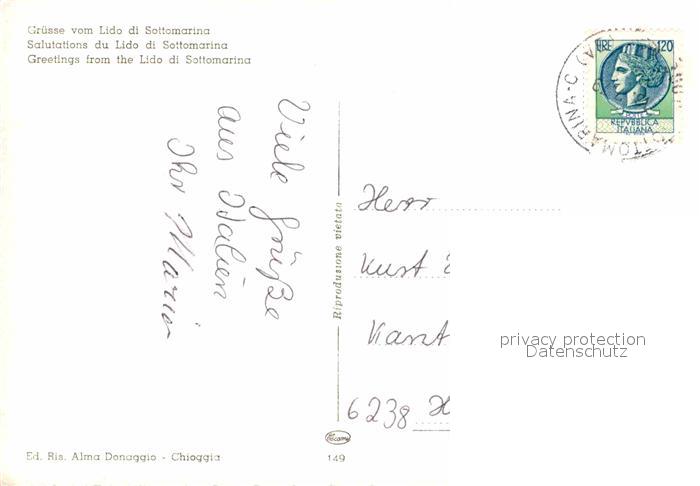 Grüsse vom Lido di Sottomarina
Salutations du Lido di Sottomarina
Greetings from the Lido di Sottomarina
LIRE 120
POSTE
REPVBBLICA
ITALIANA
SOTTOMARINA-C (VE)
Viele Grüße
aus Italien
Ihr Mario
Riproduzione vietata
Herr
Kurt
Kant
6238 H
privacy protection
Datenschutz
Ed. Ris. Alma Donaggio - Chioggia
149